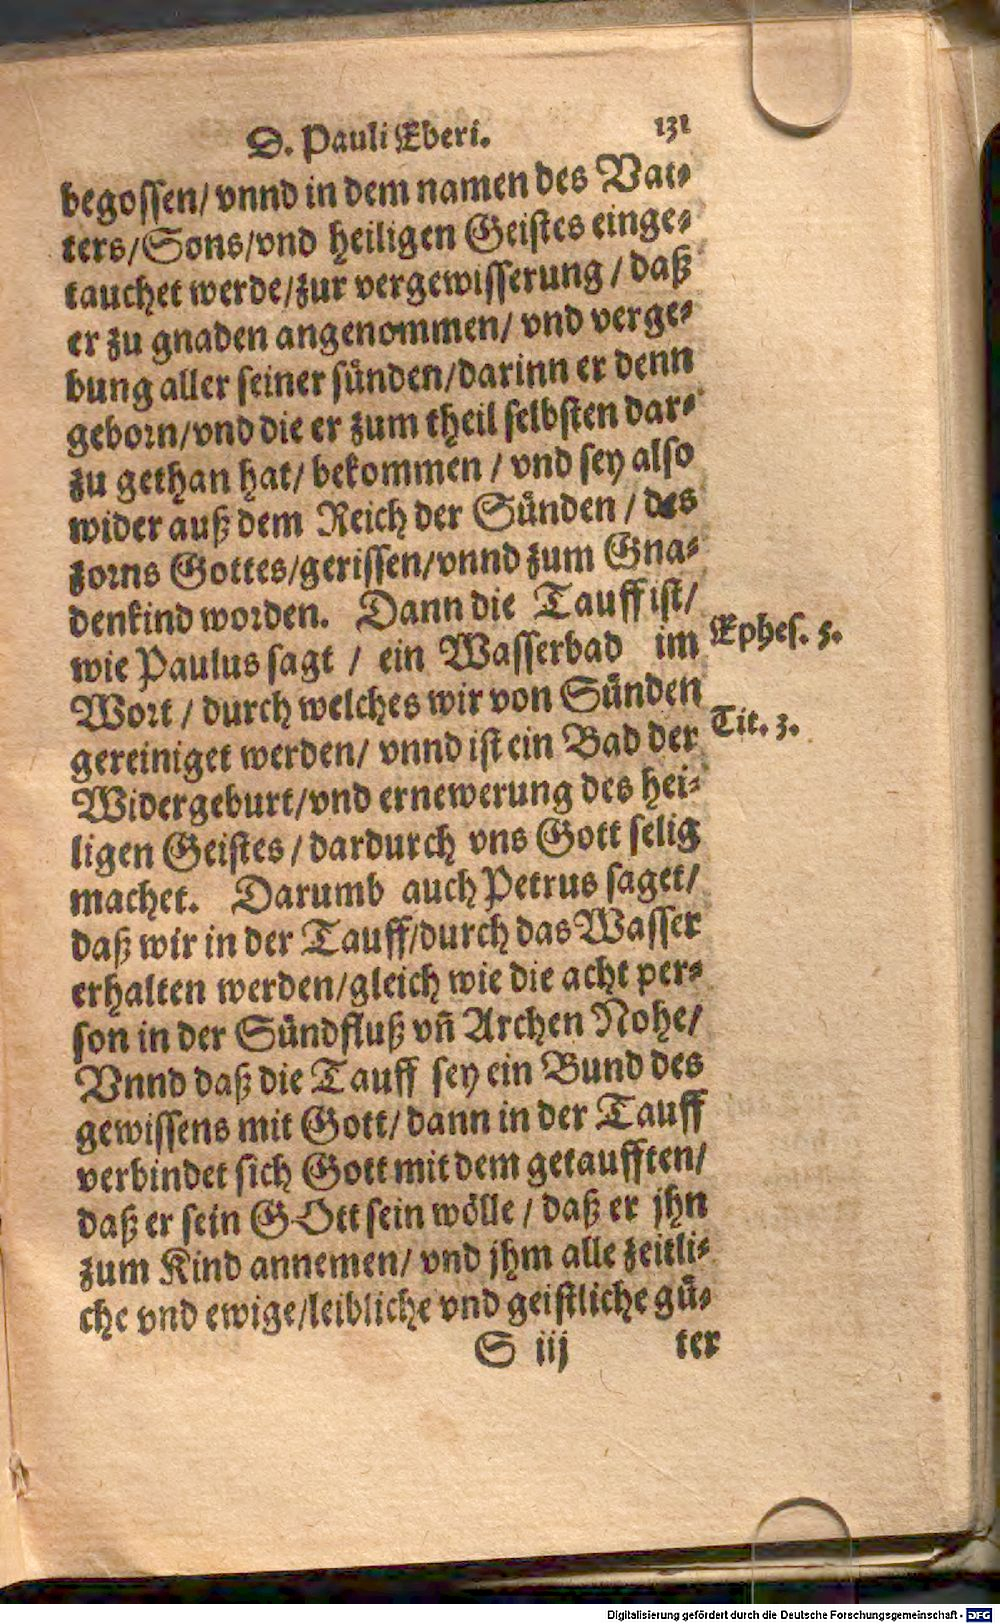 D. Pauli Eberi. 131
begossen/ vnnd in dem namen des Vat⸗
ters/Sons/vnd heiligen Geistes einge⸗
tauchet werde/zur vergewisserung / daß
er zu gnaden angenommen/ vnd verge⸗
bung aller seiner sünden/darinn er denn
geborn/vnd die er zum theil selbsten dar⸗
zu gethan hat/ bekommen / vnd sey also
wider auß dem Reich der Sünden / des
zorns Gottes/gerissen/vnnd zum Gna⸗
denkind worden. Dann die Tauff ist/
wie Paulus sagt / ein Wasserbad im
Ephes. 5.
Wort / durch welches wir von Sünden
gereiniget werden/ vnnd ist ein Bad der
Tit. 3.
Widergeburt/vnd ernewerung des hei⸗
ligen Geistes / dardurch vns Gott selig
machet. Darumb auch Petrus saget/
daß wir in der Tauff/durch das Wasser
erhalten werden/gleich wie die acht per⸗
son in der Sündfluß vñ Archen Nohe/
Vnnd daß die Tauff sey ein Bund des
gewissens mit Gott/ dann in der Tauff
verbindet sich Gott mit dem getaufften/
daß er sein GOtt sein wölle / daß er jhn
zum Kind annemen/ vnd jhm alle zeitli⸗
che vnd ewige/leibliche vnd geistliche gü⸗
S iij ter
Digitalisierung gefördert durch die Deutsche Forschungsgemeinschaft - DFG